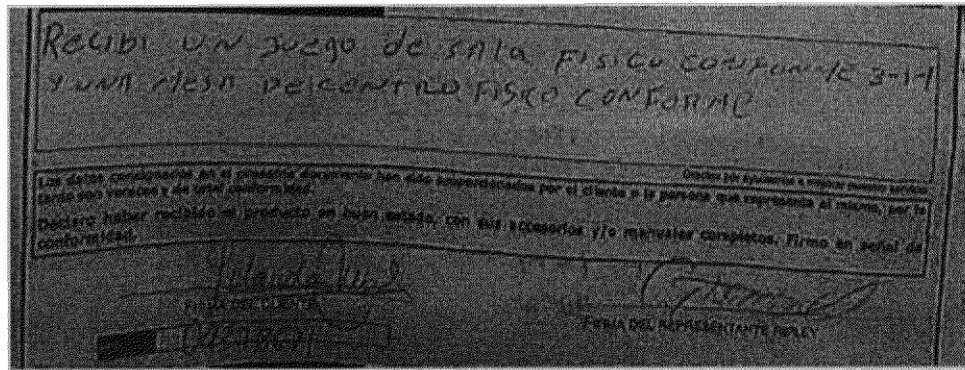 Recibi un juego de sala Fisico conforme 3-1-1
y una mesa de centro Fisico conforme
Gracias por ayudarnos a mejorar nuestro servicio
Los datos consignados en el presente documento han sido proporcionados por el cliente o la persona que representa al mismo, por lo
tanto son veraces y de total conformidad.
Declaro haber recibido el producto en buen estado, con sus accesorios y/o manuales completos. Firmo en señal de
conformidad.
Yolanda
FIRMA DEL CLIENTE
FIRMA DEL REPRESENTANTE RIPLEY